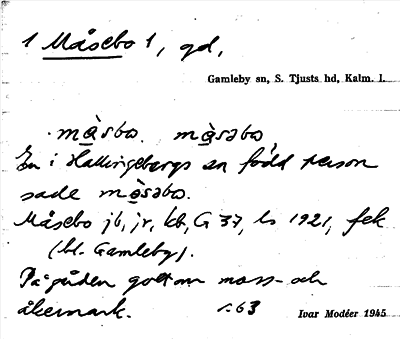 1 Måsebo 1, gd,
Gamleby sn, S. Tjusts hd, Kalm. l.
mɑ̀sbo. mɑ̀səbo
En i Hallingebergs sn född person
sade mɑ̀səbo.
Måsebo jb, jr, kb, G 37, ls 1921, fek
(bl. Gamleby).
På gården gott om moss- och
åkermark. s. 63
Ivar Modéer 1945